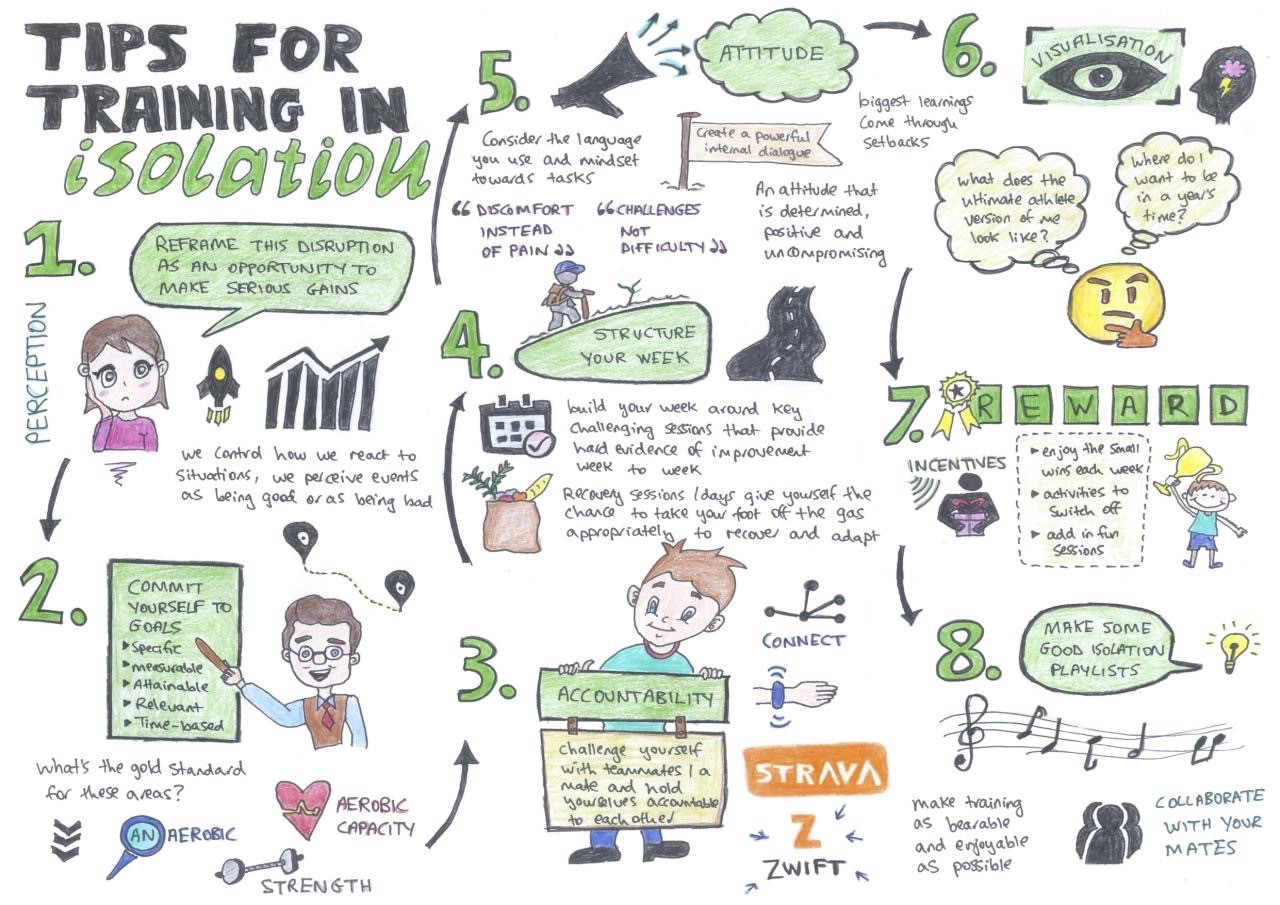 TIPS FOR
TRAINING IN
isolation
1.
PERCEPTION
REFRAME THIS DISRUPTION
AS AN OPPORTUNITY TO
MAKE SERIOUS GAINS
we control how we react to
situations, we perceive events
as being good or as being bad
2.
COMMIT
YOURSELF TO
GOALS
▶ Specific
▶ measurable
▶ Attainable
▶ Relevant
▶ Time-based
what's the gold standard
for these areas?
ANAEROBIC
AEROBIC
CAPACITY
STRENGTH
3.
ACCOUNTABILITY
challenge yourself
with teammates / a
mate and hold
yourselves accountable
to each other
CONNECT
STRAVA
Z
ZWIFT
4.
STRUCTURE
YOUR WEEK
build your week around key
challenging sessions that provide
hard evidence of improvement
week to week
Recovery sessions / days give yourself the
chance to take your foot off the gas
appropriately to recover and adapt
5.
ATTITUDE
Consider the language
you use and mindset
towards tasks
Create a powerful
internal dialogue
“ DISCOMFORT
INSTEAD
OF PAIN ”
“ CHALLENGES
NOT
DIFFICULTY ”
An attitude that
is determined,
positive and
uncompromising
6.
VISUALISATION
biggest learnings
come through
setbacks
what does the
ultimate athlete
version of me
look like?
where do I
want to be
in a year's
time?
7.
REWARD
INCENTIVES
▶ enjoy the small
wins each week
▶ activities to
switch off
▶ add in fun
sessions
8.
MAKE SOME
GOOD ISOLATION
PLAYLISTS
make training
as bearable
and enjoyable
as possible
COLLABORATE
WITH YOUR
MATES